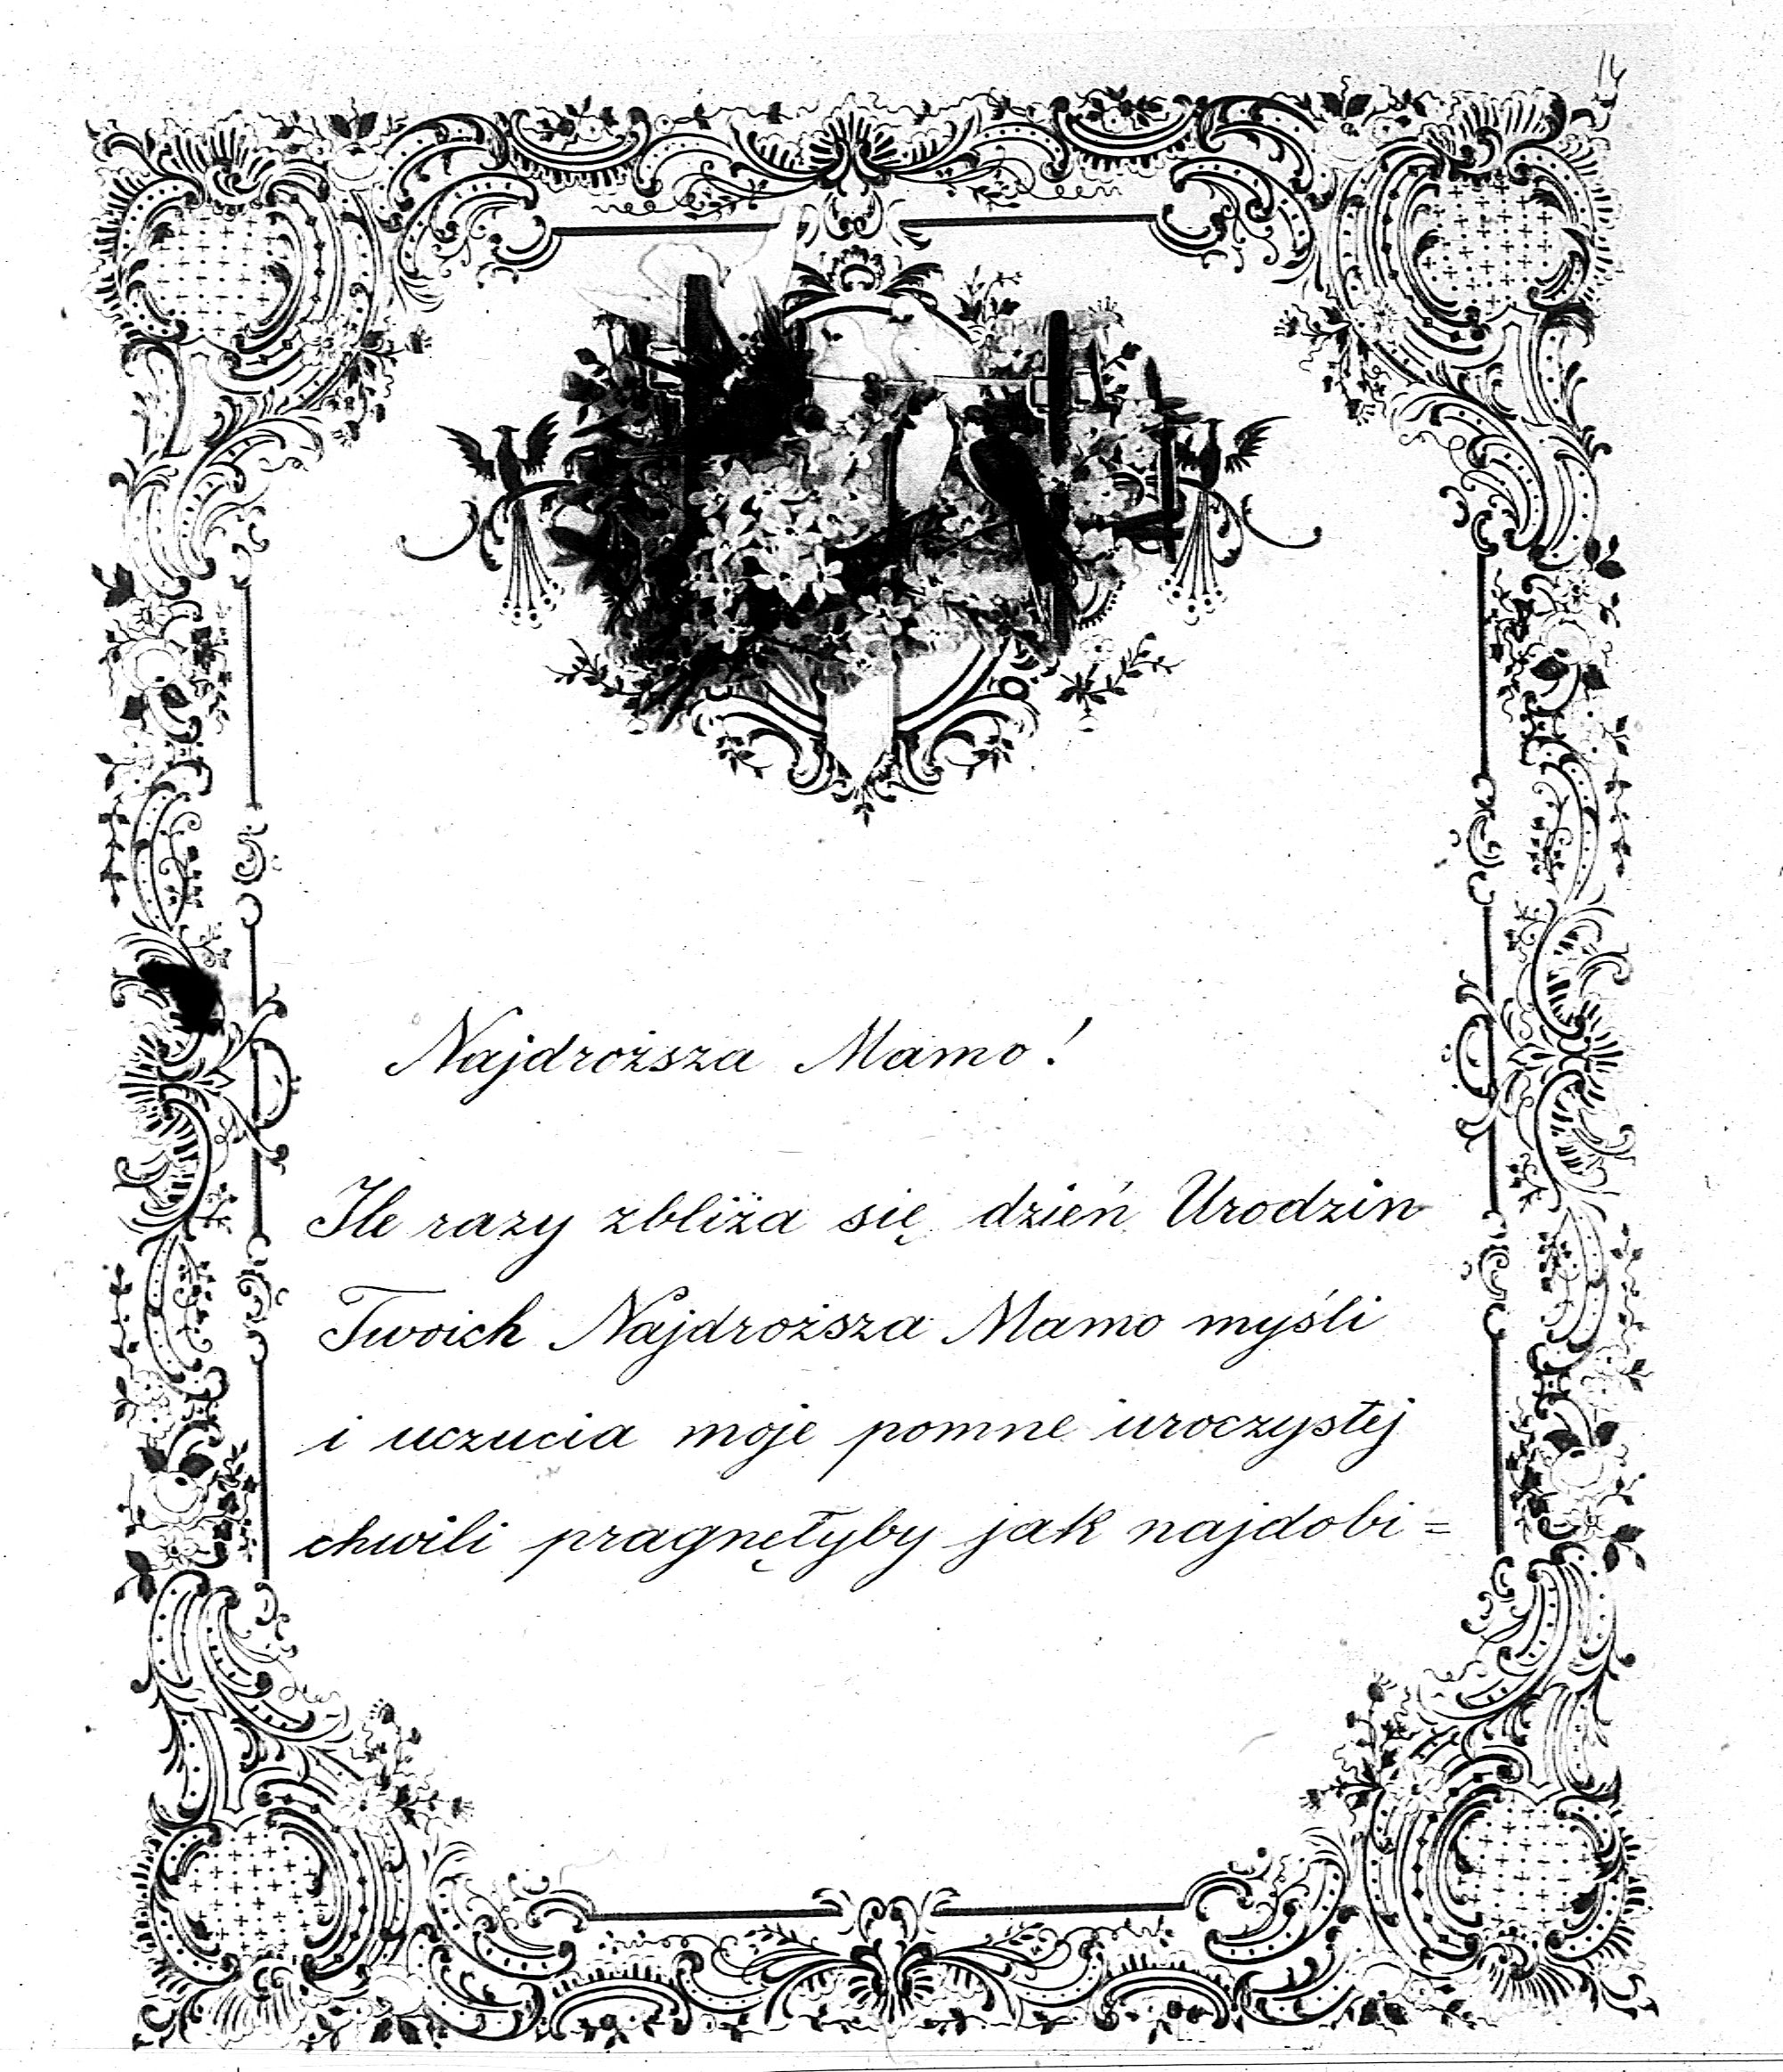 14
Najdroższa Mamo!
Ile razy zbliża się dzień Urodzin
Twoich Najdroższa Mamo myśli
i uczucia moje pomne uroczystej
chwili pragnęłyby jak najdobi=